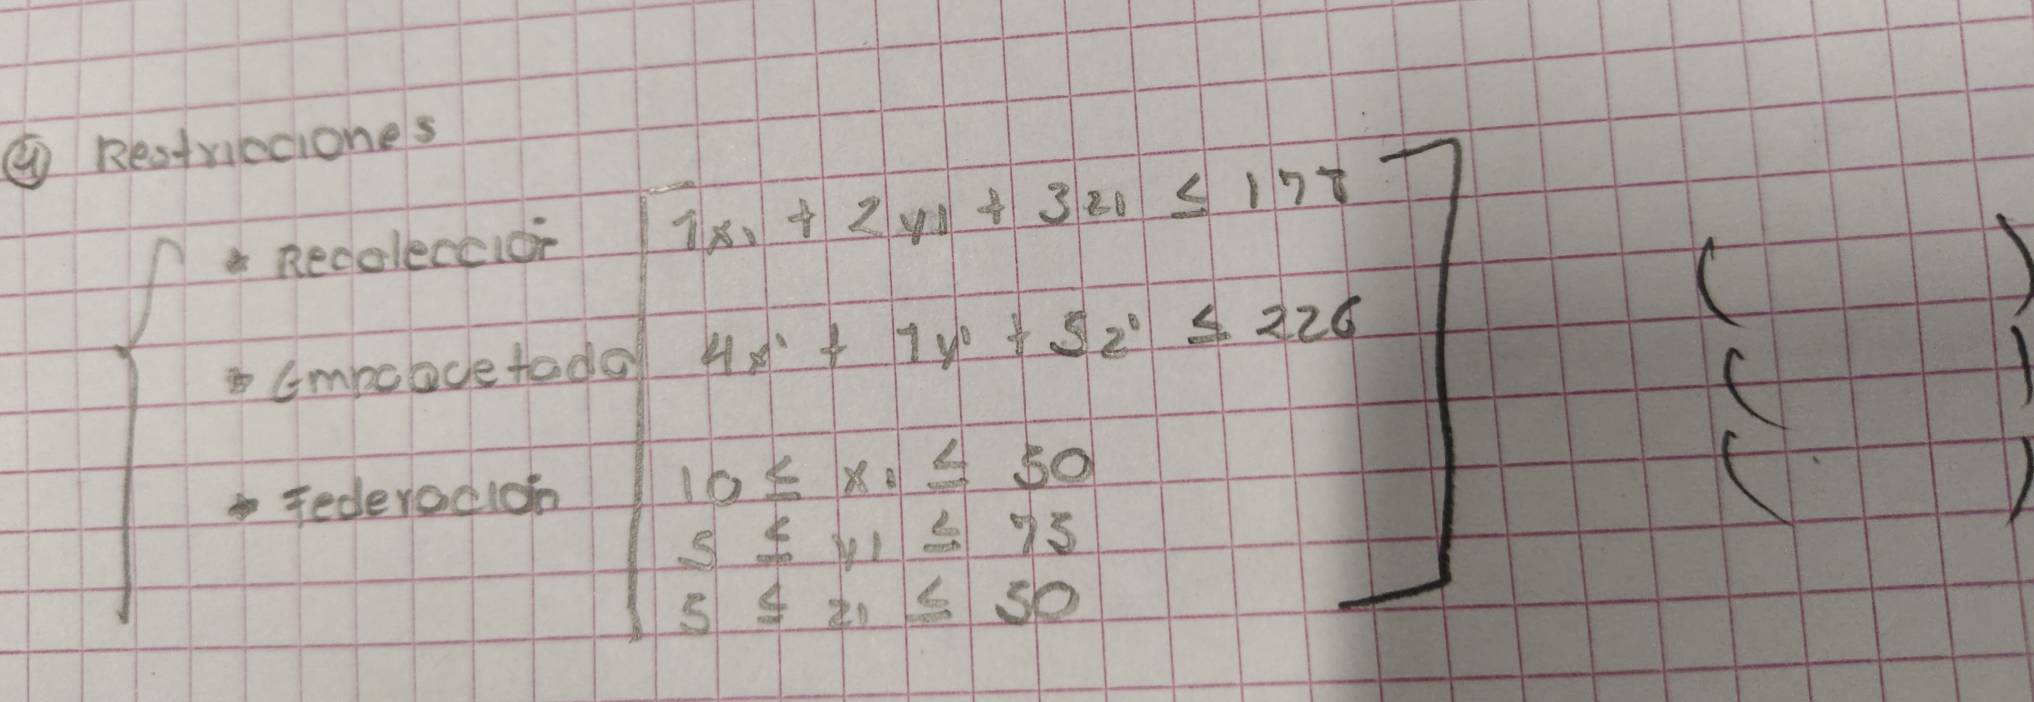 ④ Restricciones
* Recolección 1x₁ + 2y₁ + 3z₁ ≤ 177
* Empaquetado 4x₁ + 1y₁ + 5z₁ ≤ 226
* Federación 10 ≤ x₁ ≤ 50
5 ≤ y₁ ≤ 75
5 ≤ z₁ ≤ 50